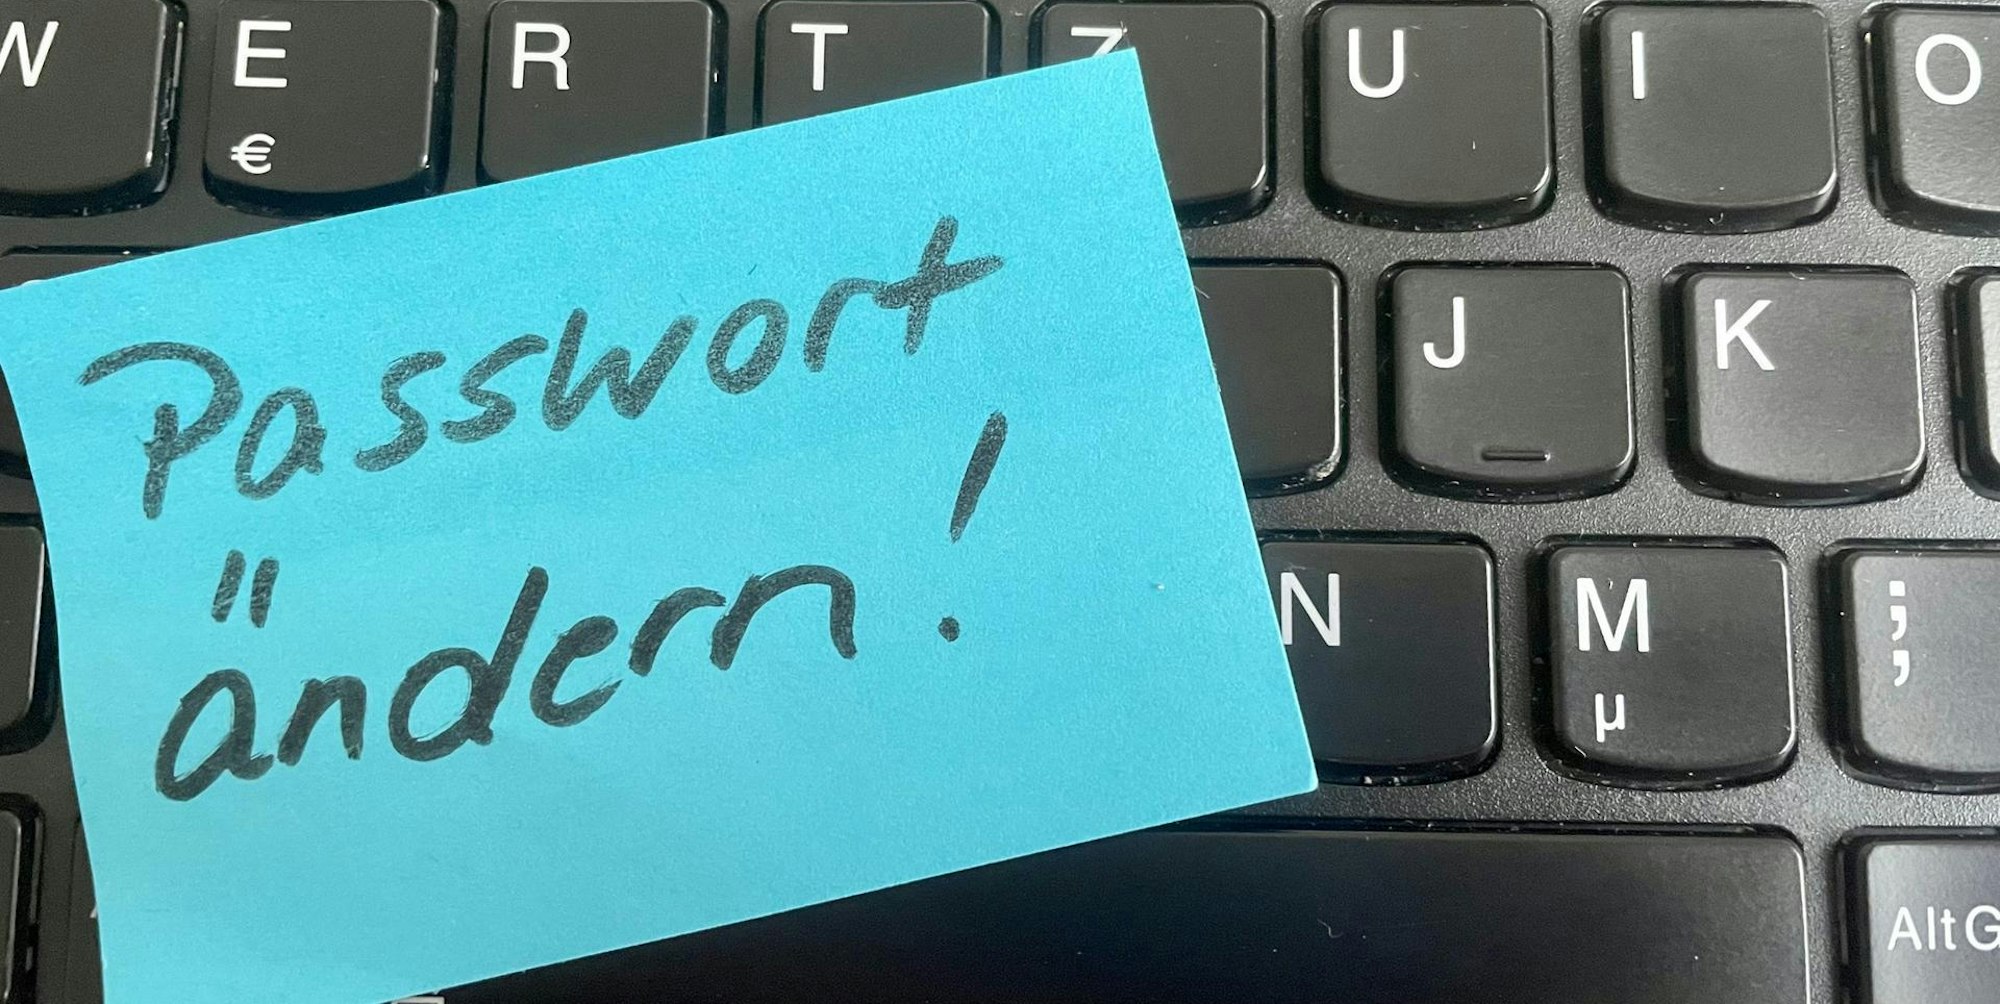 W E R T Z U I O
€
Passwort
J K
ändern!
N M ;
µ ,
AltG